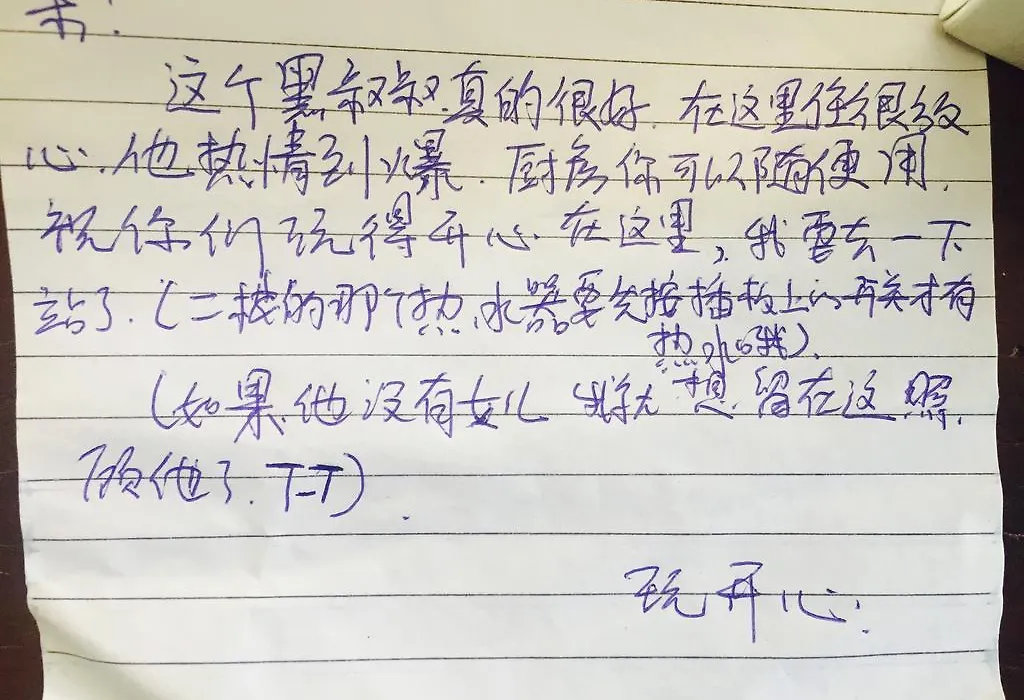 这个黑叔叔真的很好.在这里住很放
心.他热情到爆.厨房你可以随便用.
祝你们玩得开心.在这里,我要去一下
站了.(二楼的那个热水器要先按插板上的开关才有
热水哦).
(如果他没有女儿 我就想留在这照.
顾他了.T-T).
玩开心.